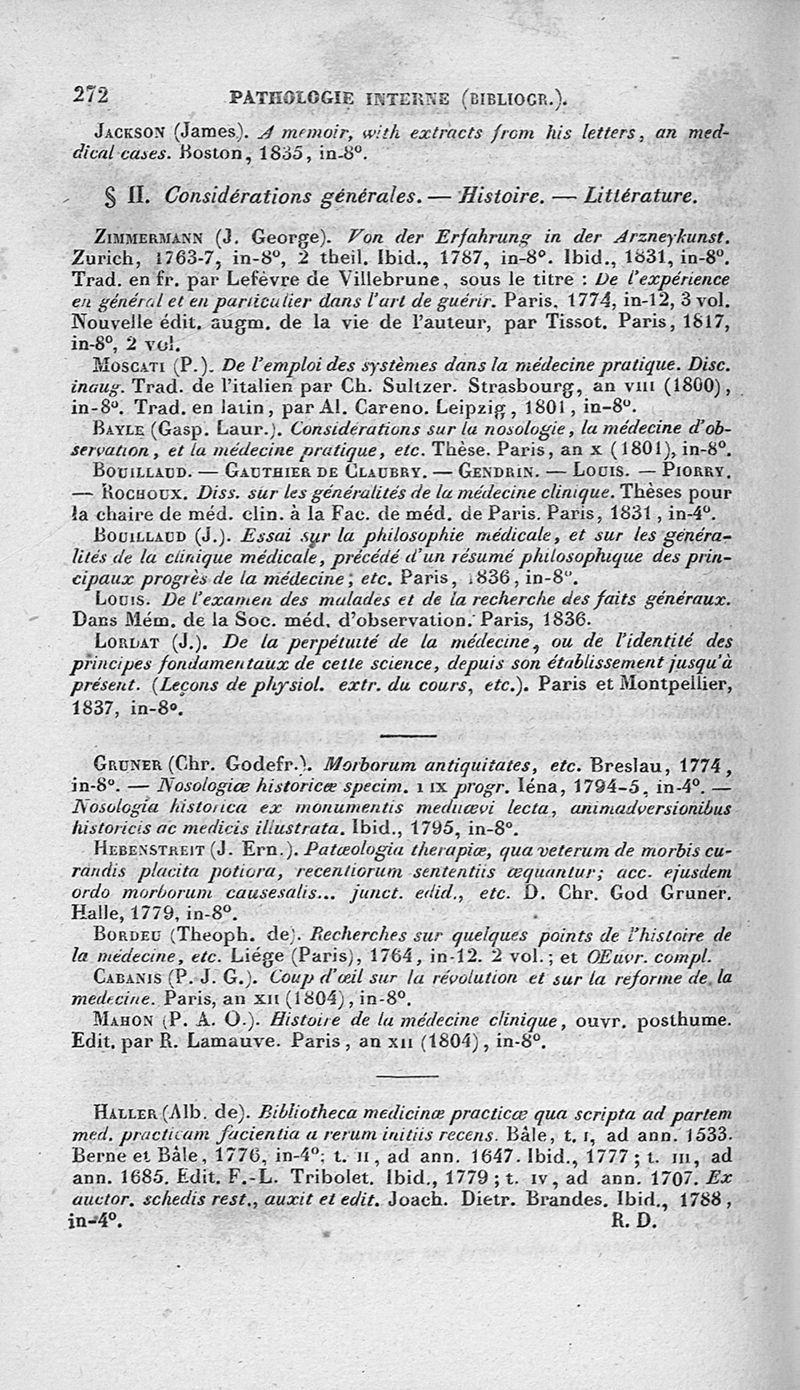 272 PATHOLOGIE INTERNE (BIBLIOGR.).
JACKSON (James). A memoir, with extracts from his letters, an med-
dical cases. Boston, 1835, in-8°.
§ II. Considérations générales. — Histoire. — Littérature.
ZIMMERMANN (J. George). Von der Erfahrung in der Arzneykunst.
Zurich, 1763-7, in-8°, 2 theil. Ibid., 1787, in-8°. Ibid., 1831, in-8°.
Trad. en fr. par Lefèvre de Villebrune, sous le titre : De l'expérience
en général et en particulier dans l'art de guérir. Paris, 1774, in-12, 3 vol.
Nouvelle édit. augm. de la vie de l'auteur, par Tissot. Paris, 1817,
in-8°, 2 vol.
MOSCATI (P.). De l'emploi des systèmes dans la médecine pratique. Disc.
inaug. Trad. de l'italien par Ch. Sultzer. Strasbourg, an VIII (1800),
in-8°. Trad. en latin, par Al. Careno. Leipzig, 1801, in-8°.
BAYLE (Gasp. Laur.). Considérations sur la nosologie, la médecine d'ob-
servation, et la médecine pratique, etc. Thèse. Paris, an X (1801), in-8°.
BOUILLAUD. — GAUTHIER DE CLAUBRY. — GENDRIN. — LOUIS. — PIORRY.
— ROCHOUX. Diss. sur les généralités de la médecine clinique. Thèses pour
la chaire de méd. clin. à la Fac. de méd. de Paris. Paris, 1831, in-4°.
BOUILLAUD (J.). Essai sur la philosophie médicale, et sur les généra-
lités de la clinique médicale, précédé d'un résumé philosophique des prin-
cipaux progrès de la médecine; etc. Paris, 1836, in-8°.
LOUIS. De l'examen des malades et de la recherche des faits généraux.
Dans Mém. de la Soc. méd. d'observation. Paris, 1836.
LORDAT (J.). De la perpétuité de la médecine, ou de l'identité des
principes fondamentaux de cette science, depuis son établissement jusqu'à
présent. (Leçons de physiol. extr. du cours, etc.). Paris et Montpellier,
1837, in-8°.
GRUNER (Chr. Godefr.). Morborum antiquitates, etc. Breslau, 1774,
in-8°. — Nosologiæ historicæ specim. I IX progr. Iéna, 1794-5, in-4°. —
Nosologia historica ex monumentis mediiævi lecta, animadversionibus
historicis ac medicis illustrata. Ibid., 1795, in-8°.
HEBENSTREIT (J. Ern.). Patæologia therapiæ, qua veterum de morbis cu-
randis placita potiora, recentiorum sententiis æquantur; acc. ejusdem
ordo morborum causesalis... junct. edid., etc. D. Chr. God Gruner.
Halle, 1779, in-8°.
BORDEU (Theoph. de). Recherches sur quelques points de l'histoire de
la médecine, etc. Liége (Paris), 1764, in-12. 2 vol.; et OEuvr. compl.
CABANIS (P. J. G.). Coup d'œil sur la révolution et sur la reforme de la
medecine. Paris, an XII (1804), in-8°.
MAHON (P. A. O.). Histoire de la médecine clinique, ouvr. posthume.
Edit. par R. Lamauve. Paris, an XII (1804), in-8°.
HALLER (Alb. de). Bibliotheca medicinæ practicæ qua scripta ad partem
med. practicam facientia a rerum initiis recens. Bâle, t. I, ad ann. 1533.
Berne et Bâle, 1776, in-4°; t. II, ad ann. 1647. Ibid., 1777; t. III, ad
ann. 1685. Edit. F.-L. Tribolet. Ibid., 1779; t. IV, ad ann. 1707. Ex
auctor. schedis rest., auxit et edit. Joach. Dietr. Brandes. Ibid., 1788,
in-4°. R. D.